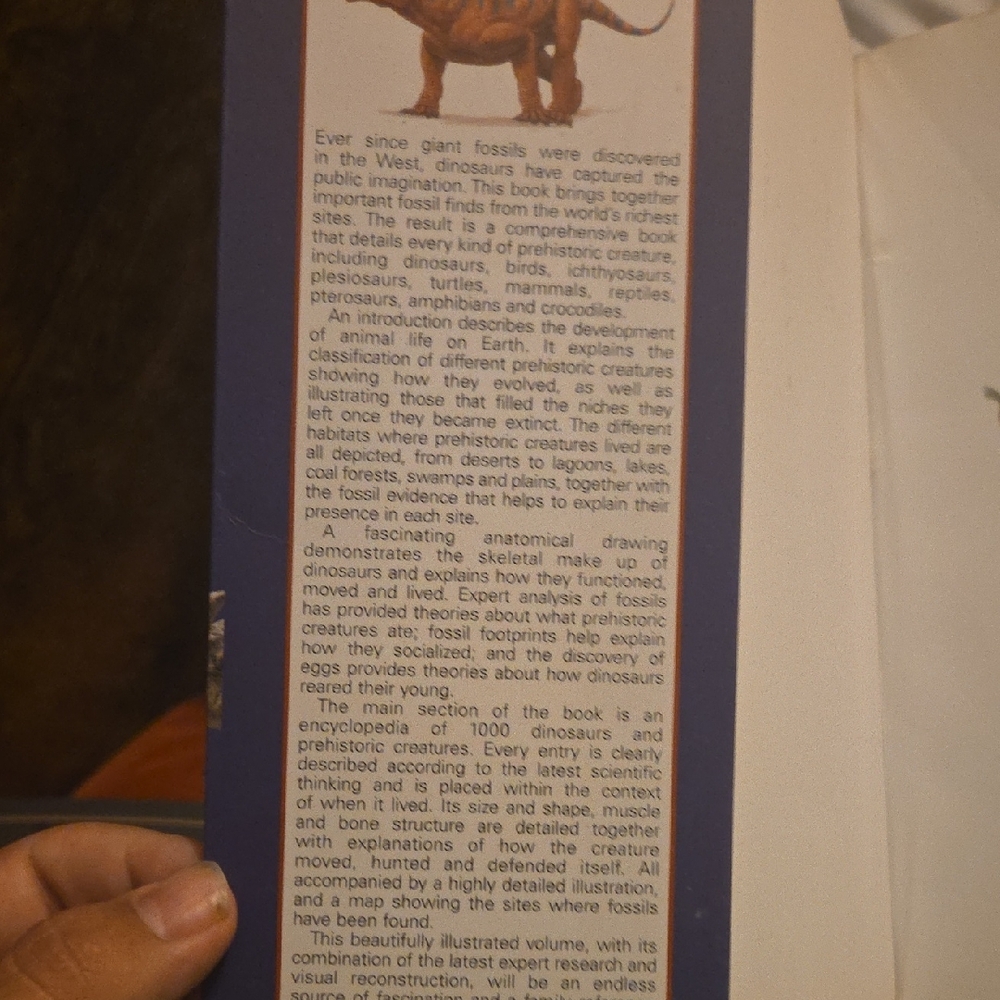 Ever since giant fossils were discovered
in the West, dinosaurs have captured the
public imagination. This book brings together
important fossil finds from the world's richest
sites. The result is a comprehensive book
that details every kind of prehistoric creature,
including dinosaurs, birds, ichthyosaurs,
plesiosaurs, turtles, mammals, reptiles,
pterosaurs, amphibians and crocodiles.
An introduction describes the development
of animal life on Earth. It explains the
classification of different prehistoric creatures
showing how they evolved, as well as
illustrating those that filled the niches they
left once they became extinct. The different
habitats where prehistoric creatures lived are
all depicted, from deserts to lagoons, lakes,
coal forests, swamps and plains, together with
the fossil evidence that helps to explain their
presence in each site.
A fascinating anatomical drawing
demonstrates the skeletal make up of
dinosaurs and explains how they functioned,
moved and lived. Expert analysis of fossils
has provided theories about what prehistoric
creatures ate; fossil footprints help explain
how they socialized; and the discovery of
eggs provides theories about how dinosaurs
reared their young.
The main section of the book is an
encyclopedia of 1000 dinosaurs and
prehistoric creatures. Every entry is clearly
described according to the latest scientific
thinking and is placed within the context
of when it lived. Its size and shape, muscle
and bone structure are detailed together
with explanations of how the creature
moved, hunted and defended itself. All
accompanied by a highly detailed illustration,
and a map showing the sites where fossils
have been found.
This beautifully illustrated volume, with its
combination of the latest expert research and
visual reconstruction, will be an endless
source of fascination and a family